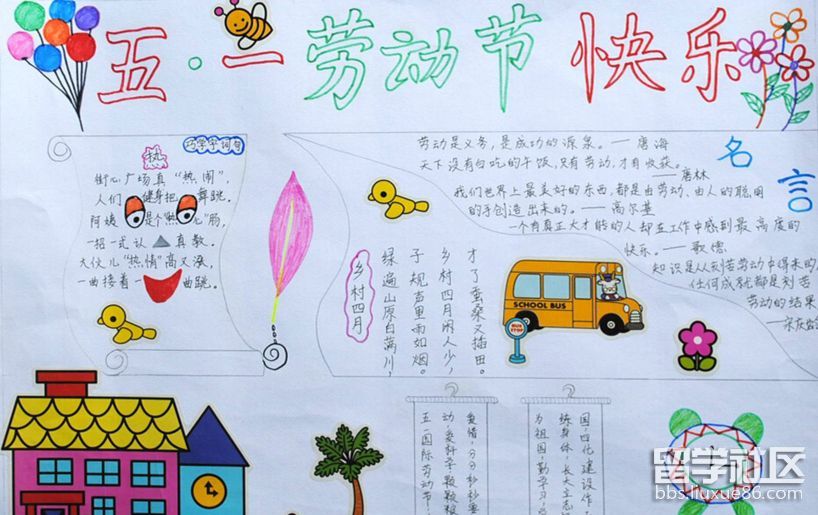 五·一劳动节快乐
巧学字词句
热
街心广场真“热闹”，
人们 健身把 舞跳。
阿姨 是个“热心”肠，
一招一式认 真教。
大伙儿“热情”高又涨，
一曲接着一 曲跳。
名言
劳动是义务，是成功的源泉。——唐海
天下没有白吃的午饭，只有劳动，才有收获。
——唐林
我们世界上最美好的东西，都是由劳动、由人的聪明
的手创造出来的。——高尔基
一个有真正大才能的人却在工作中感到最高度的
快乐。——歌德
知识是从刻苦劳动中得来的，
任何成就都是刻苦
劳动的结果
——宋庆龄
乡村四月
绿遍山原白满川，
子规声里雨如烟。
乡村四月闲人少，
才了蚕桑又插田。
SCHOOL BUS
BUS STOP
爱惜，分分秒秒要
动，爱科学
五一国际劳动节！
国，四化建设作
练身体，长大立志
为祖国，勤学习
留学社区
bbs.liuxue86.com